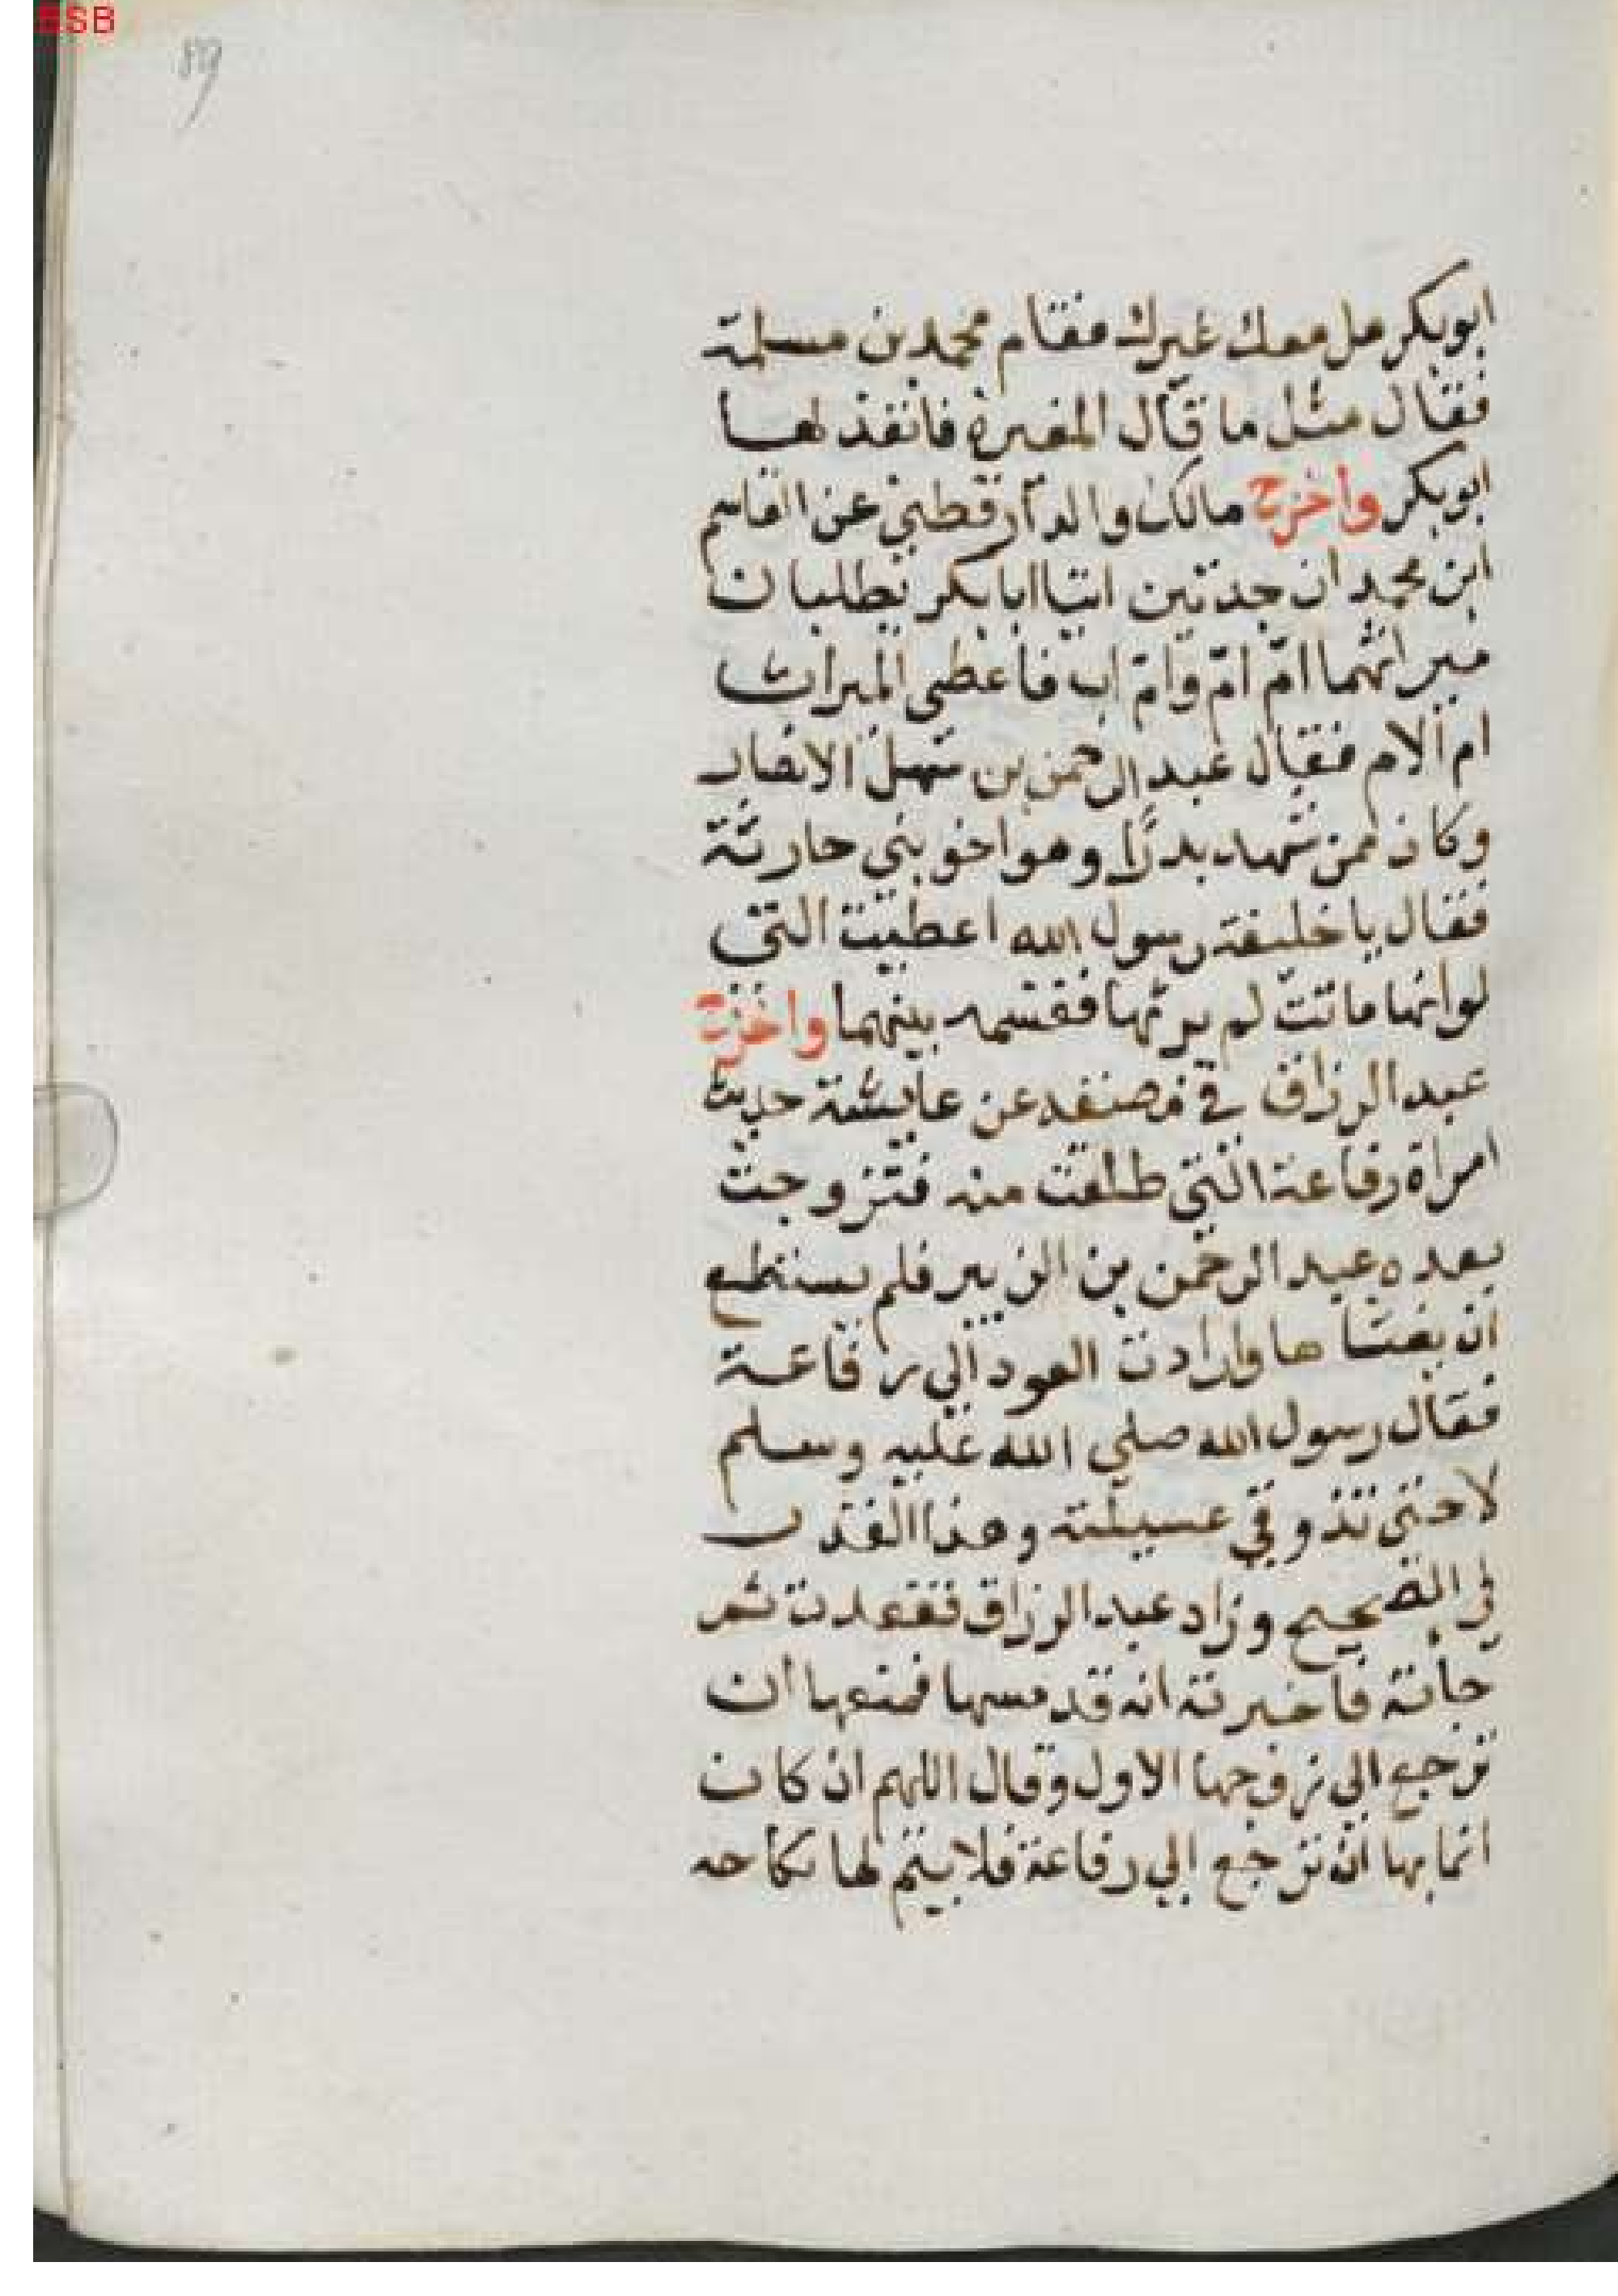 BSB
89
ابو بكر هل معك غيرك فقام محمد بن مسلمة
فقال مثل ما قال المغيرة فانفذ لها
ابو بكر واخرج مالك والدارقطني عن القاسم
ابن محمد ان جدتين اتيا ابا بكر تطلبان
ميراثهما ام ام وام اب فاعطى الميراث
ام الام فقال عبد الرحمن بن سهل الانصار
وكان ممن شهد بدرًا وهو اخو بني حارثة
فقال يا خليفة رسول الله اعطيت التي
لو انها ماتت لم يرثها فقسمه بينهما واخرج
عبد الرزاق في مصنفه عن عايشة حديث
امراة رفاعة التي طلقت منه فتزوجت
بعده عبد الرحمن بن الزبير فلم يستطع
ان يغشاها وارادت العود الي رفاعة
فقال رسول الله صلي الله عليه وسلم
لا حتى تذوقي عسيلته وهذا القدر
في الصحيح وزاد عبد الرزاق فقعدت ثم
جاته فاخبرته انه قد مسها فمنعها ان
ترجع الي زوجها الاول وقال اللهم ان كان
انما بها ان ترجع الي رفاعة فلا يتم لها نكاحه